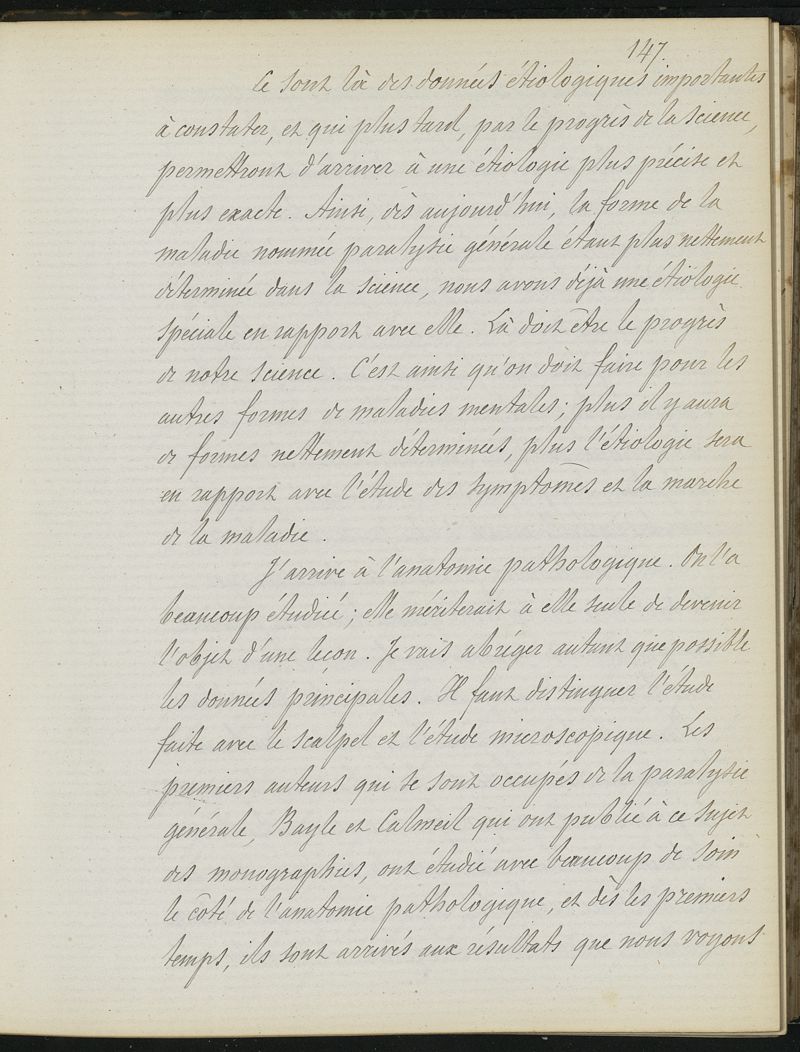 147.
Ce sont là des données étiologiques importantes
à constater, et qui plus tard, par le progrès de la science,
permettront d'arriver à une étiologie plus précise et
plus exacte. Ainsi, dès aujourd'hui, la forme de la
maladie nommée paralysie générale étant plus nettement
déterminée dans la science, nous avons déjà une étiologie
spéciale en rapport avec elle. Là doit être le progrès
de notre science. C'est ainsi qu'on doit faire pour les
autres formes de maladies mentales; plus il y aura
de formes nettement déterminées, plus l'étiologie sera
en rapport avec l'étude des symptômes et la marche
de la maladie.
J'arrive à l'anatomie pathologique. On l'a
beaucoup étudiée; elle mériterait à elle seule de devenir
l'objet d'une leçon. Je vais abréger autant que possible
les données principales. Il faut distinguer l'étude
faite avec le scalpel et l'étude microscopique. Les
premiers auteurs qui se sont occupés de la paralysie
générale, Bayle et Calmeil qui ont publié à ce sujet
des monographies, ont étudié avec beaucoup de soin
le côté de l'anatomie pathologique, et dès les premiers
temps, ils sont arrivés aux résultats que nous voyons